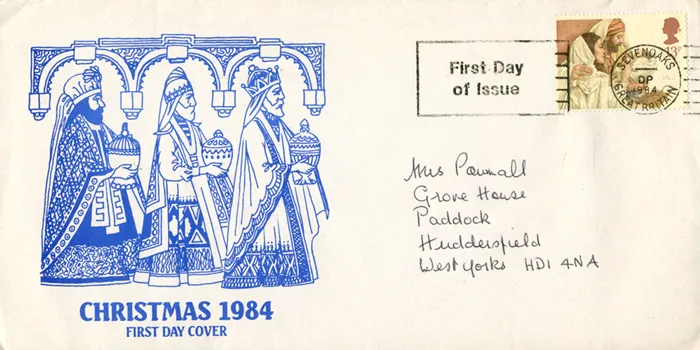 First Day
of Issue
13p
SEVENOAKS
DP
1984
GREAT BRITAIN
Mrs Pownall
Grove House
Paddock
Huddersfield
West Yorks HD1 4NA
CHRISTMAS 1984
FIRST DAY COVER